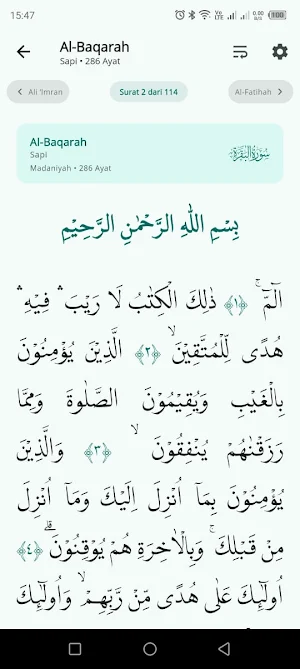 15:47
Vo LTE 0.00 B/s 100
Al-Baqarah
Sapi • 286 Ayat
Ali 'Imran
Surat 2 dari 114
Al-Fatihah
Al-Baqarah
Sapi
Madaniyah • 286 Ayat
سُورَةُ البَقَرَةِ
بِسْمِ اللّٰهِ الرَّحْمٰنِ الرَّحِيْمِ
الۤمّۤ ۚ ﴿١﴾ ذٰلِكَ الْكِتٰبُ لَا رَيْبَ ۛ فِيْهِ ۛ
هُدًى لِّلْمُتَّقِيْنَ ۙ ﴿٢﴾ الَّذِيْنَ يُؤْمِنُوْنَ
بِالْغَيْبِ وَيُقِيْمُوْنَ الصَّلٰوةَ وَمِمَّا
رَزَقْنٰهُمْ يُنْفِقُوْنَ ۙ ﴿٣﴾ وَالَّذِيْنَ
يُؤْمِنُوْنَ بِمَآ اُنْزِلَ اِلَيْكَ وَمَآ اُنْزِلَ
مِنْ قَبْلِكَ ۚ وَبِالْاٰخِرَةِ هُمْ يُوْقِنُوْنَ ۗ ﴿٤﴾
اُولٰۤىِٕكَ عَلٰى هُدًى مِّنْ رَّبِّهِمْ ۙ وَاُولٰۤىِٕكَ